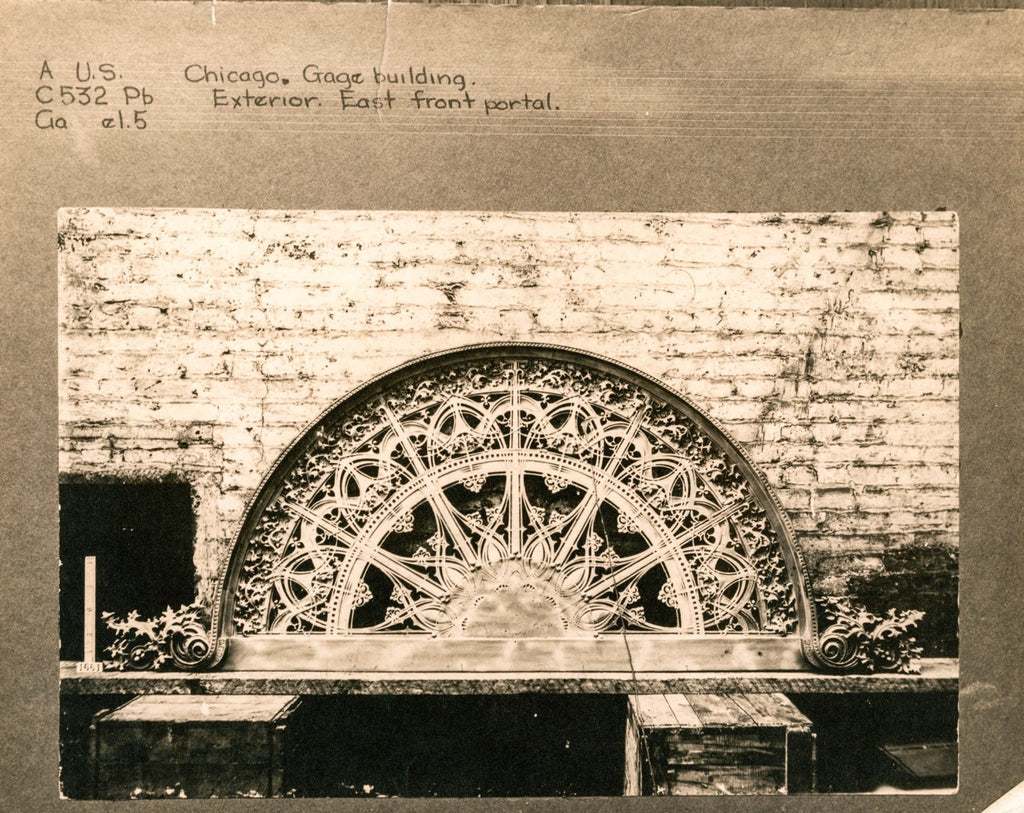 A U.S. Chicago. Gage building.
C532 Pb Exterior. East front portal.
Ga el.5
1661